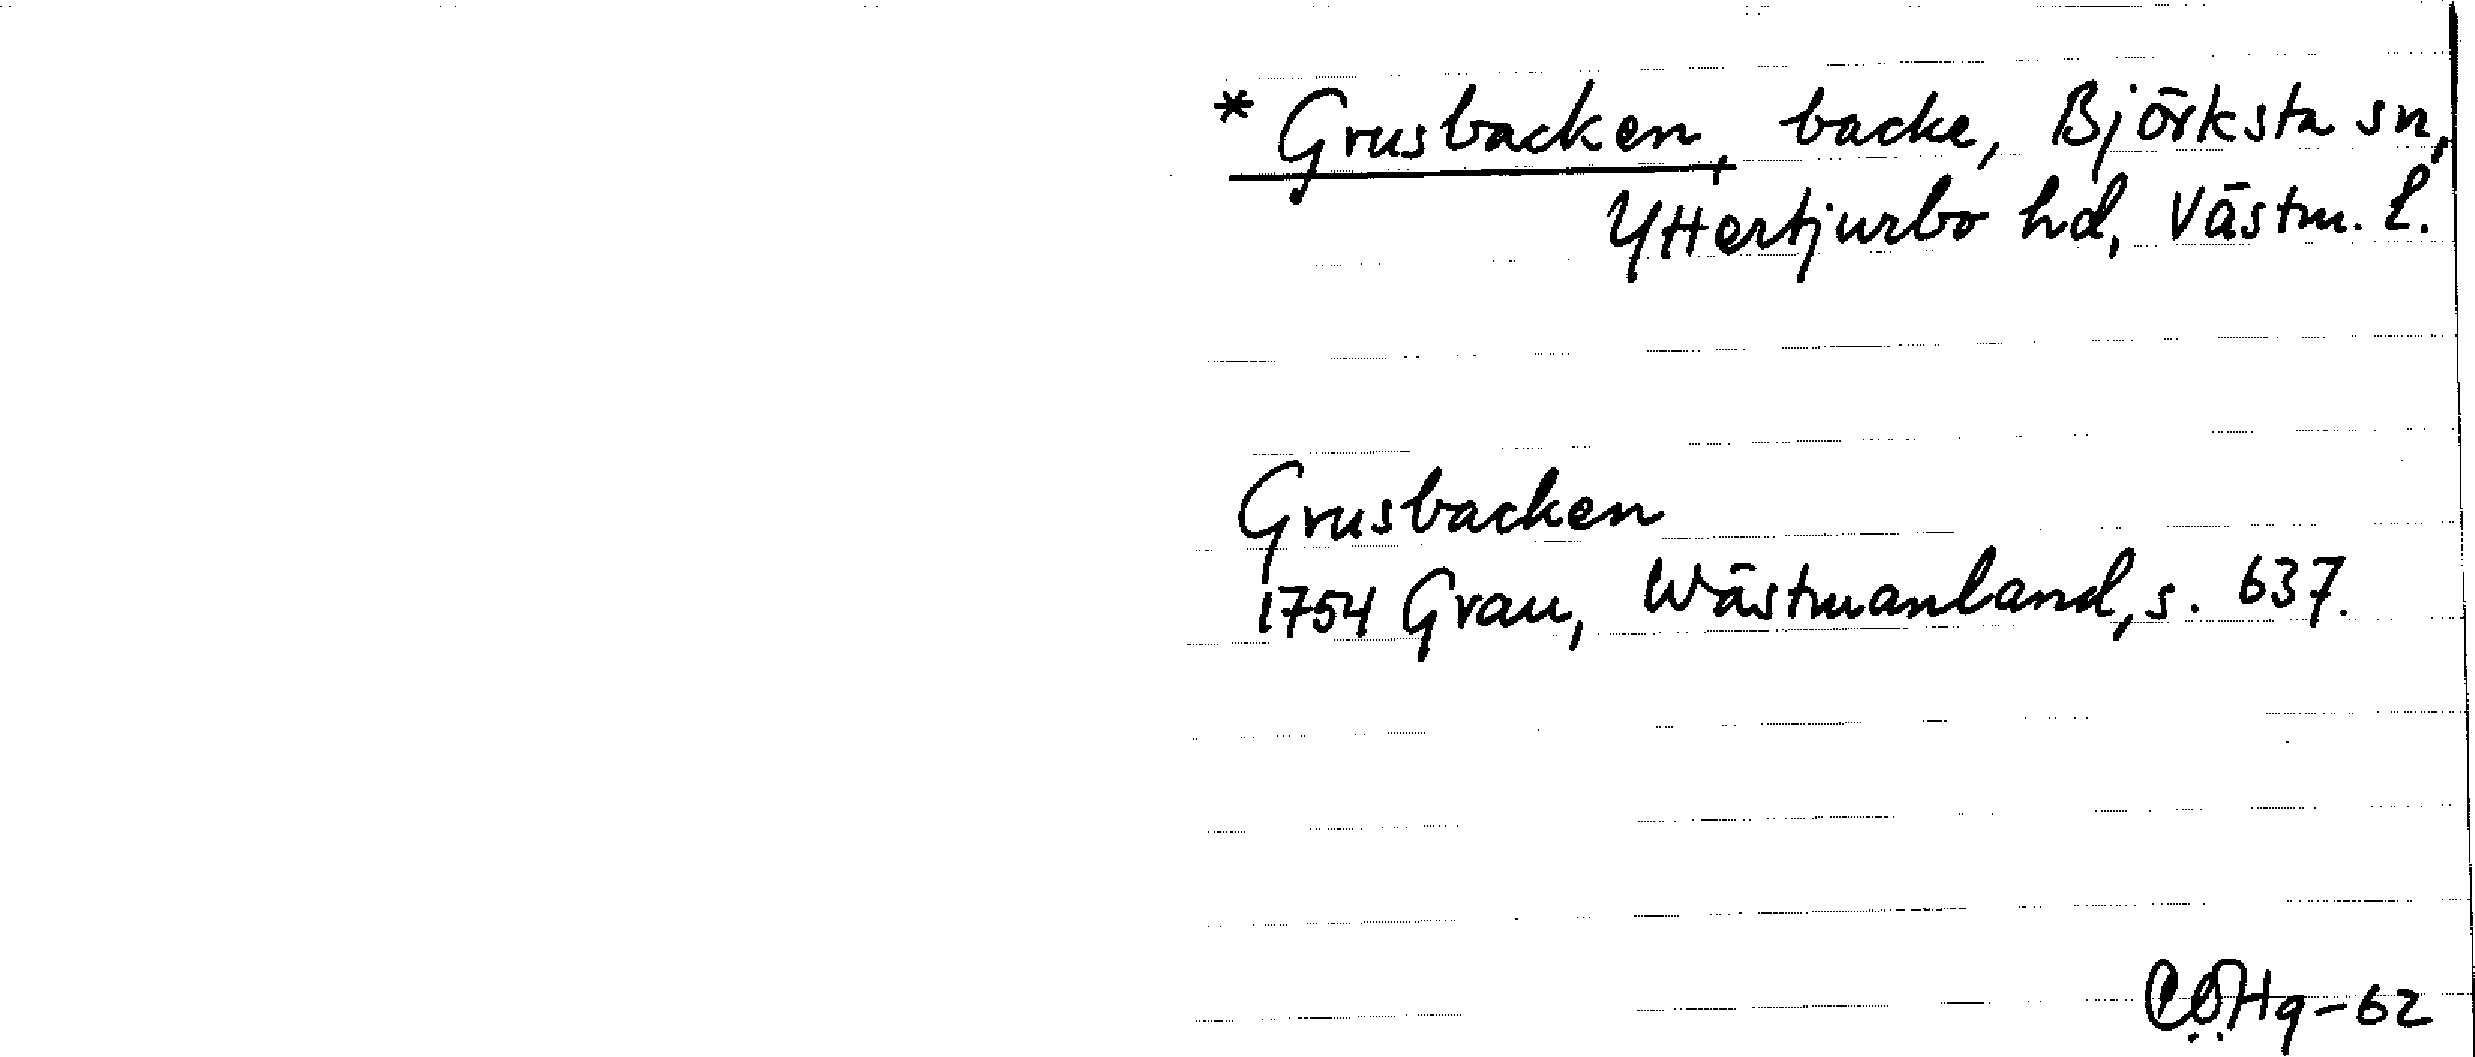 * Grusbacken, backe, Björksta sn,
Yttertjurbo hd, Västm. l.
Grusbacken
1754 Grau, Wästmanland, s. 637.